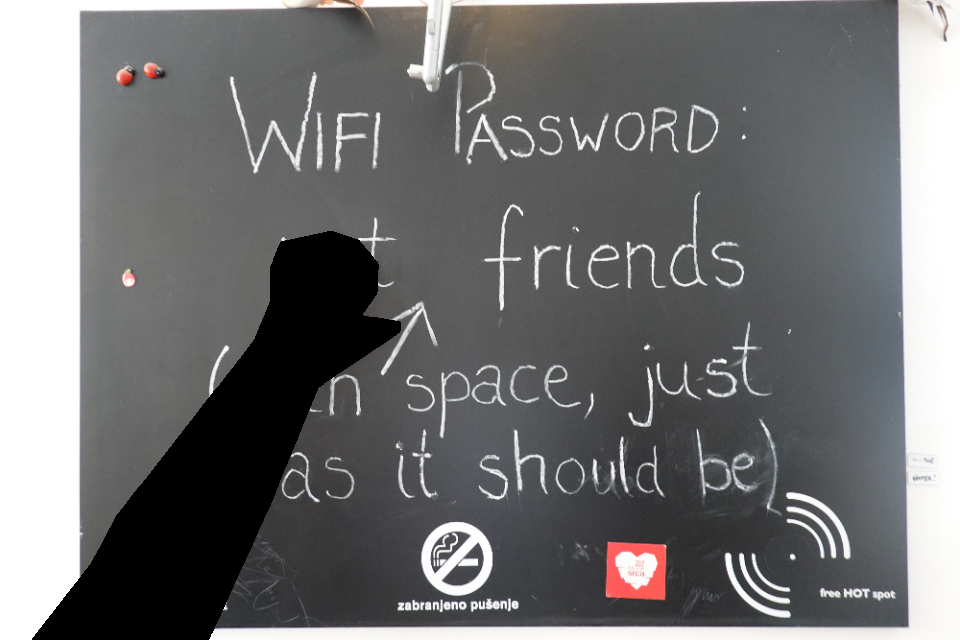 WIFI PASSWORD:
friends
space, just
as it should be)
zabranjeno pušenje
srca
free HOT spot